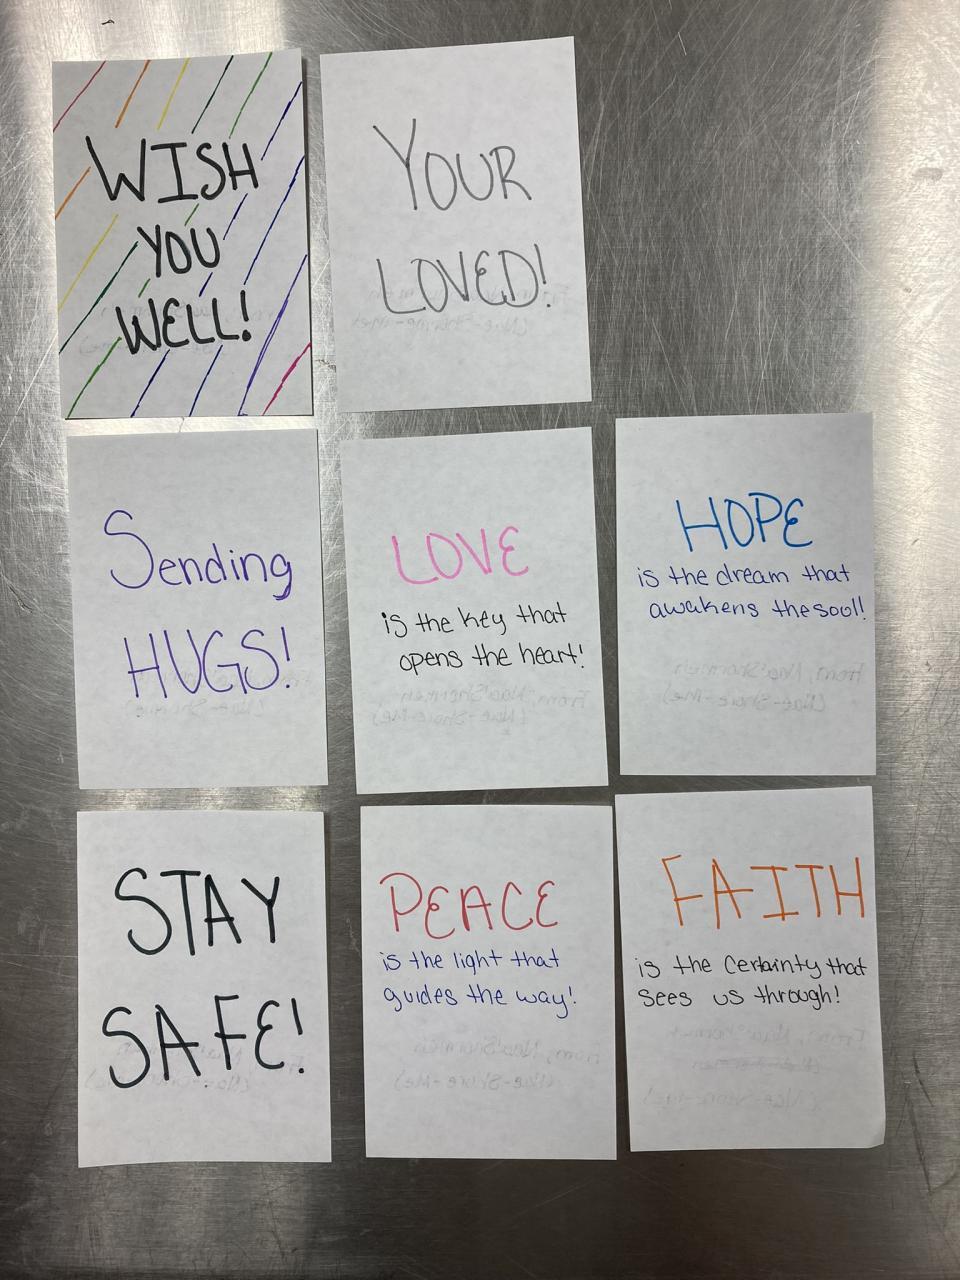 WISH
YOU
WELL!
YOUR
LOVED!
Sending
HUGS!
LOVE
is the key that
opens the heart!
HOPE
is the dream that
awakens the soul!
STAY
SAFE!
PEACE
is the light that
guides the way!
FAITH
is the certainty that
sees us through!